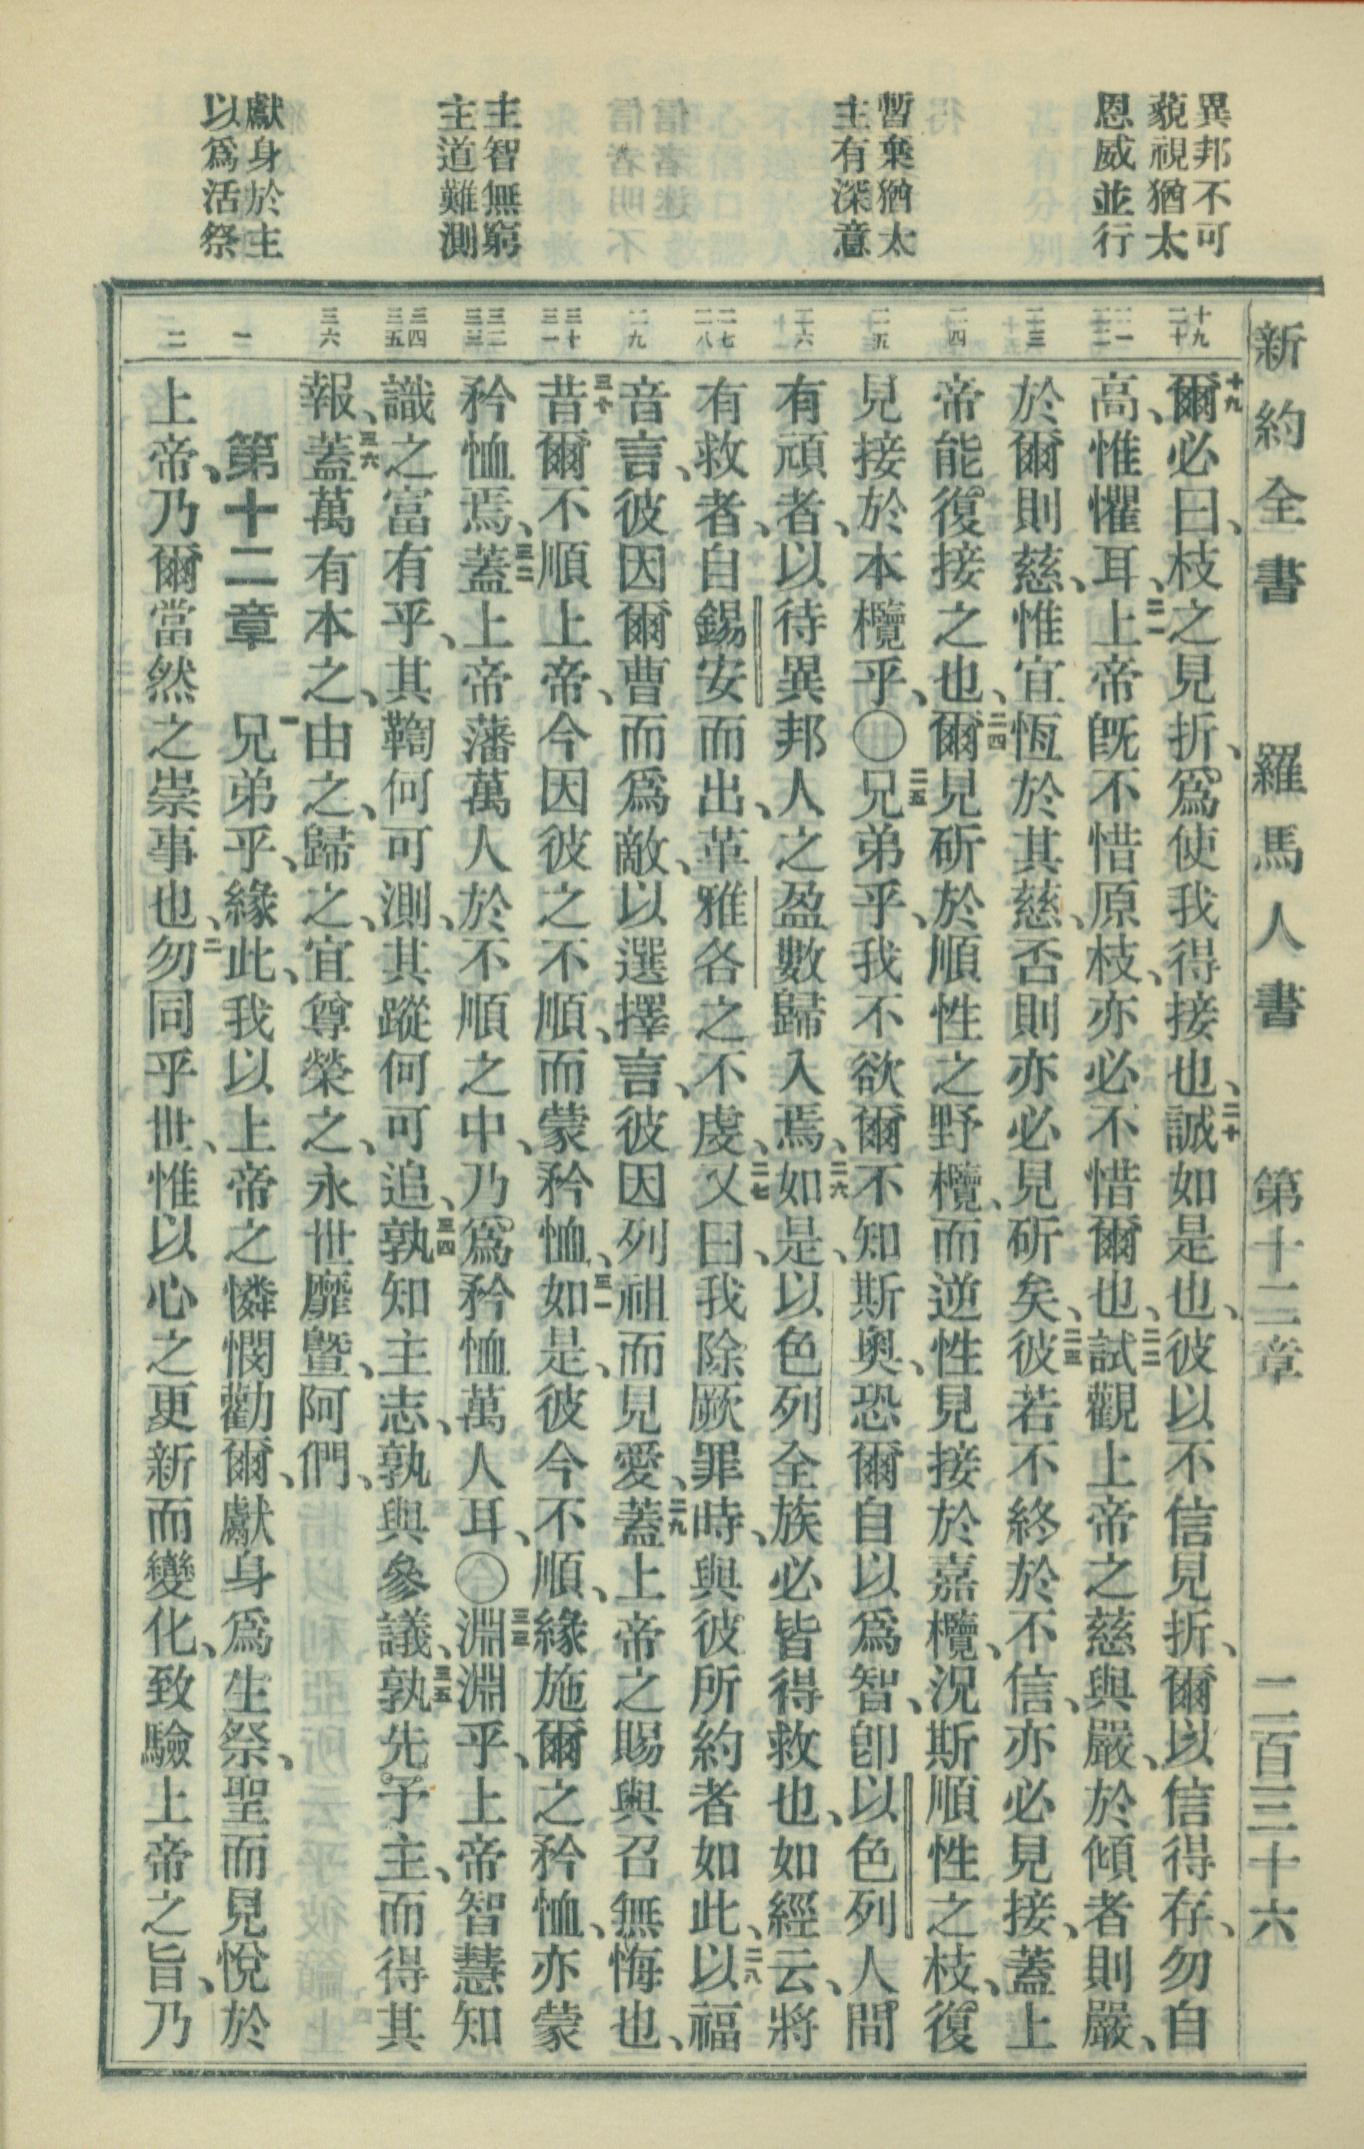 異邦不可
藐視猶太
恩威並行
暫棄猶太
主有深意
主智無窮
主道難測
獻身於主
以爲活祭
新約全書 羅馬人書 第十二章 二百三十六
十九 二十
二一 二二
二三
二四
二五
二六
二七 二八
二九
三十 三一
三二 三三
三四 三五
三六
一
二
十九爾必曰、枝之見折、爲使我得接也、二十誠如是也、彼以不信見折、爾以信得存、勿自
高、惟懼耳、二一上帝旣不惜原枝、亦必不惜爾也、二二試觀上帝之慈與嚴、於傾者則嚴、
於爾則慈、惟宜恆於其慈、否則亦必見斫矣、二三彼若不終於不信、亦必見接、蓋上
帝能復接之也、二四爾見斫於順性之野欖、而逆性見接於嘉欖、況斯順性之枝、復
見接於本欖乎、〇二五兄弟乎、我不欲爾不知斯奧、恐爾自以爲智、卽以色列人間
有頑者、以待異邦人之盈數歸入焉、二六如是、以色列全族必皆得救也、如經云、將
有救者、自錫安而出、革雅各之不虔、二七又曰、我除厥罪時、與彼所約者如此、二八以福
音言、彼因爾曹而爲敵、以選擇言、彼因列祖而見愛、二九蓋上帝之賜與召無悔也、
三十昔爾不順上帝、今因彼之不順、而蒙矜恤、三一如是、彼今不順、緣施爾之矜恤、亦蒙
矜恤焉、三二蓋上帝藩萬人於不順之中、乃爲矜恤萬人耳、〇三三淵淵乎、上帝智慧知
識之富有乎、其鞫何可測、其蹤何可追、三四孰知主志、孰與參議、三五孰先予主、而得其
報、三六蓋萬有本之、由之、歸之、宜尊榮之、永世靡曁、阿們、
第十二章 一兄弟乎、緣此、我以上帝之憐憫勸爾、獻身爲生祭、聖而見悅於
上帝、乃爾當然之崇事也、二勿同乎世、惟以心之更新而變化、致驗上帝之旨、乃